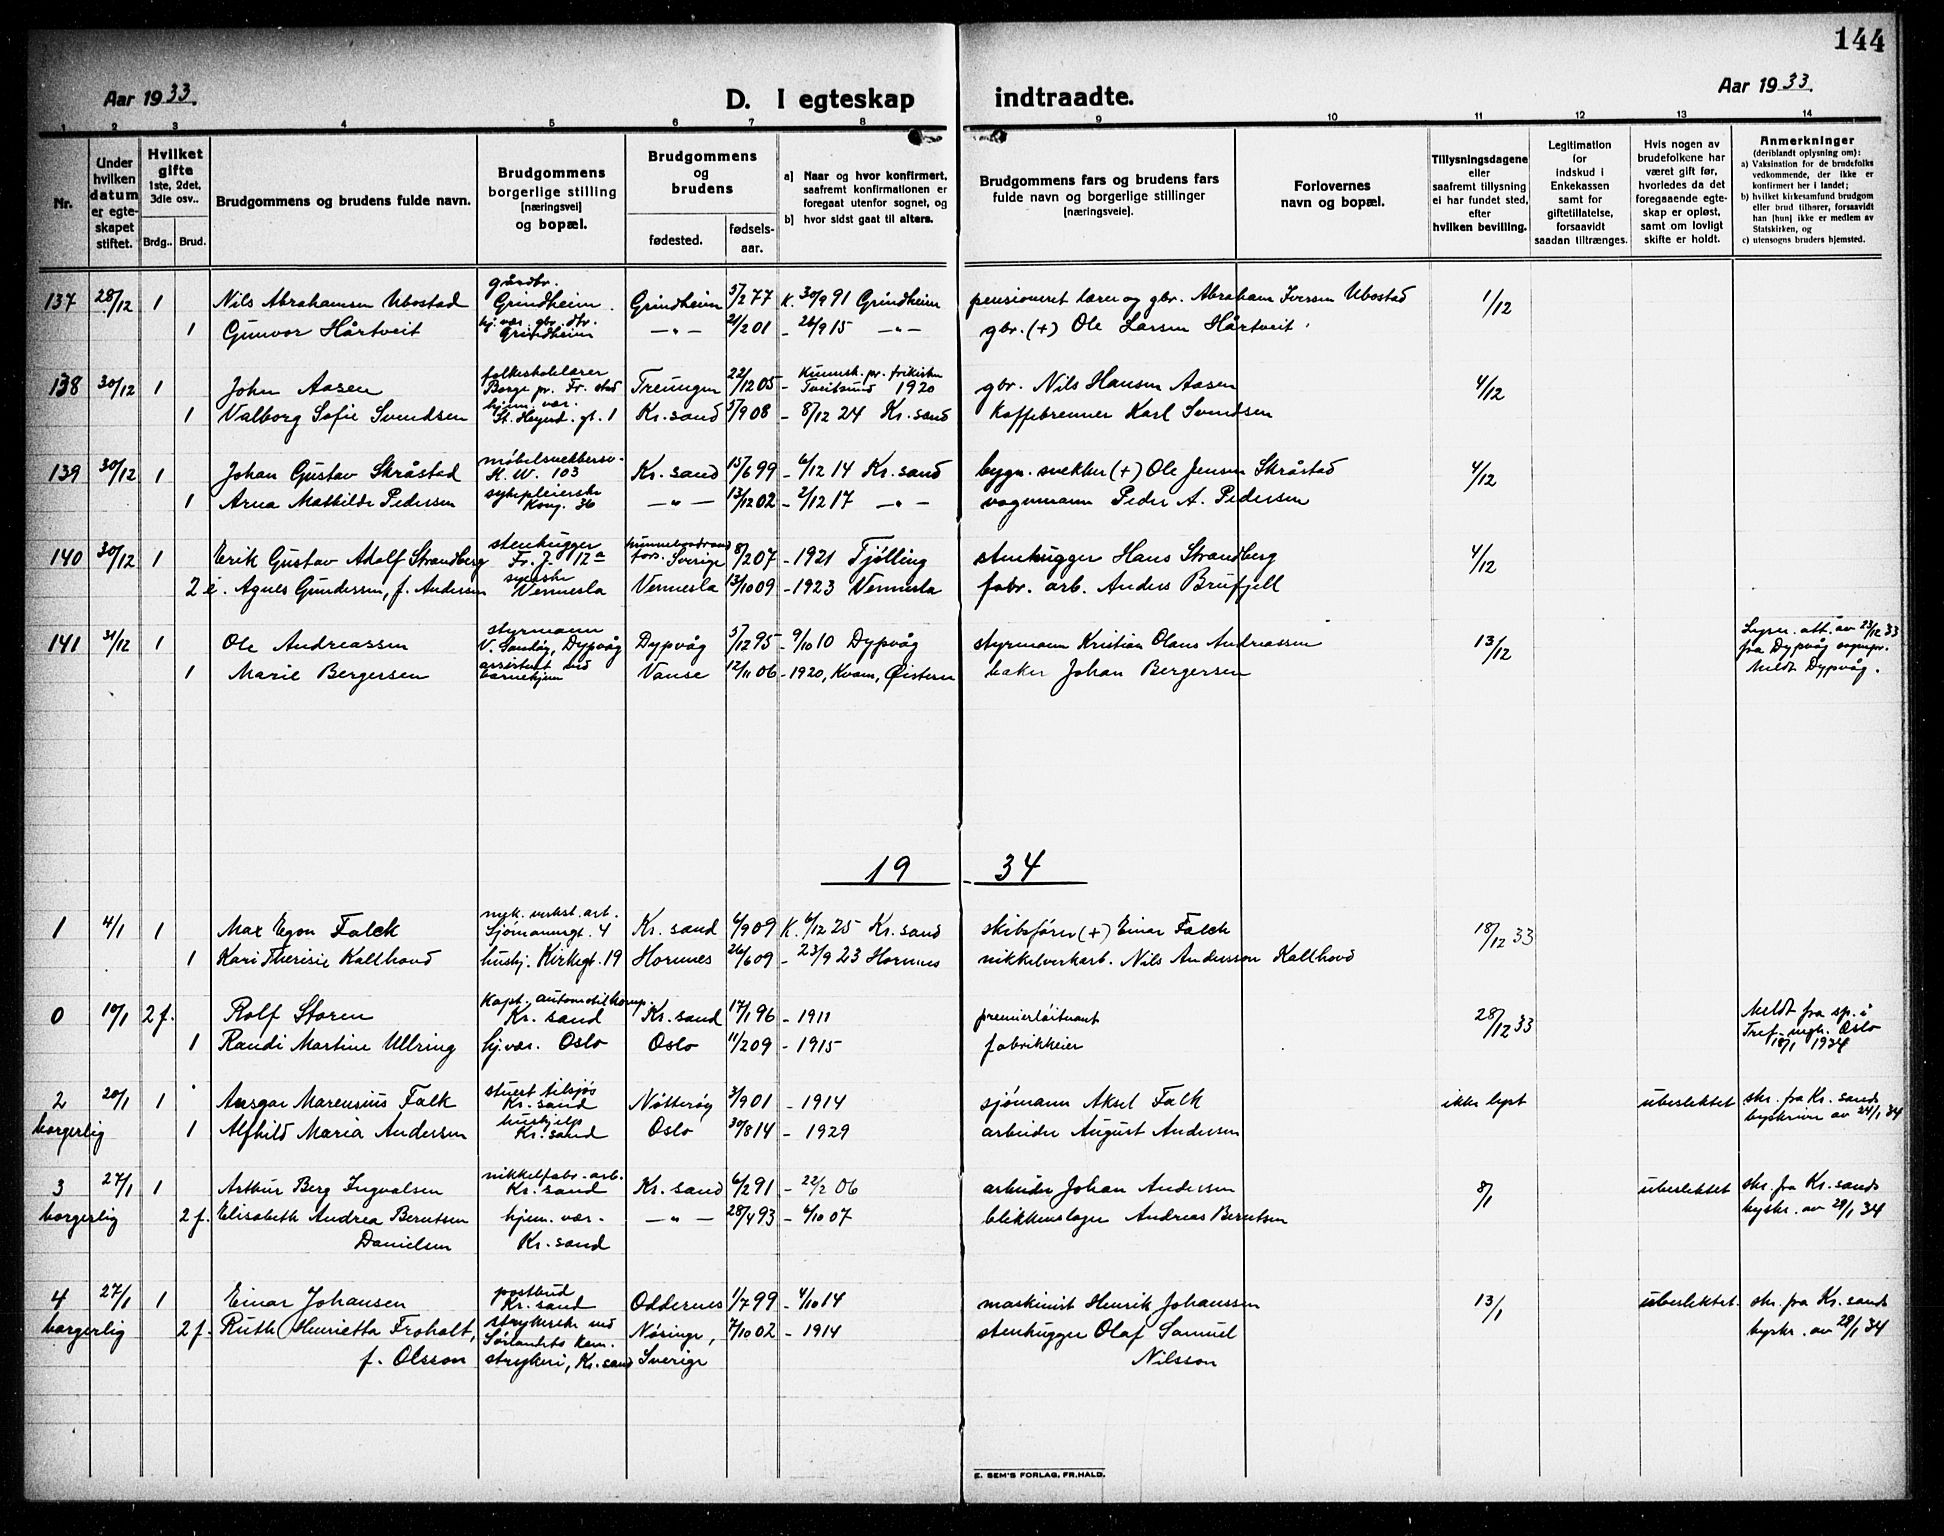 144
Aar 1933.
D. I egteskap indtraadte.
Aar 1933.
1 2 3 4 5 6 7 8 9 10 11 12 13 14
Nr.
Under hvilken datum er egteskapet stiftet.
Hvilket gifte 1ste, 2det, 3die osv..
Brdg.. Brud.
Brudgommens og brudens fulde navn.
Brudgommens borgerlige stilling [næringsvei] og bopæl.
Brudgommens og brudens
fødested. fødsels-aar.
a) Naar og hvor konfirmert, saafremt konfirmationen er foregaat utenfor sognet, og
b) hvor sidst gaat til alters.
Brudgommens fars og brudens fars fulde navn og borgerlige stillinger [næringsveie].
Forlovernes navn og bopæl.
Tillysningsdagene eller saafremt tillysning ei har fundet sted, efter hvilken bevilling.
Legitimation for indskud i Enkekassen samt for giftetillatelse, forsaavidt saadan tiltrænges.
Hvis nogen av brudefolkene har været gift før, hvorledes da det foregaaende egteskap er opløst, samt om lovligt skifte er holdt.
Anmerkninger (deriblandt oplysning om):
a) Vaksination for de brudefolks vedkommende, der ikke er konfirmert her i landet;
b) hvilket kirkesamfund brudgom eller brud tilhører, forsaavidt han [hun] ikke er medlem av Statskirken, og
c) utensogns bruders hjemsted.
137 28/12 1 Nils Abrahamsen Ubostad gårdbr. Grindheim Grindheim 5/2 77 K. 30/9 91 Grindheim pensioneret lærer og gbr. Abraham Iversen Ubostad 1/12
1 Gunvor Hårtveit hj. vær. gbr. dtr. Grindheim —"— 21/2 01 - 26/9 15 —"— gbr. (+) Ole Larsen Hårtveit
138 30/12 1 John Aasen folkeskolelærer Borge pr. Fr.stad Treungen 22/12 05 - Tveitsund 1920 gbr. Nils Hansen Aasen 4/12
1 Valborg Sofie Svendsen hjem. vær. St. Hansd. gt. 1 Kr.sand 5/9 08 - 8/12 24 Kr.sand Kaffebrenner Karl Svendsen
139 30/12 1 Johan Gustav Skråstad møbelsnekkersv. K. W. 103 Kr.sand 15/6 99 - 6/12 14 Kr.sand bygn. snekker (+) Ole Jensen Skråstad 4/12
1 Arna Mathilde Pedersen sykepleierske Kong. 36 —"— 13/12 02 - 2/12 17 —"— vognmann Peder A. Pedersen
140 30/12 1 Erik Gustav Adolf Strandberg stenhugger Fr. J. 12 a Sverige 8/2 07 - 1921 Tjølling stenhugger Hans Strandberg 4/12
2 e. Agnes Gundersen, f. Andersen syerske Vennesla Vennesla 13/10 09 - 1923 Vennesla fabr. arb. Anders Brufjell
141 31/12 1 Ole Andreassen styrmann V. Sandøy, Dypvåg Dypvåg 5/12 95 - 9/10 10 Dypvåg styrmann Kristian Olaus Andreassen 13/12 Lysn. att. av 23/12 33 fra Dypvåg sognepr. Meldt Dypvåg.
1 Marie Bergersen assistent ved barnehjem Vanse 12/11 06 - 1920, Kvam, Øistern baker Johan Bergersen
19 34
1 4/1 1 Max Egon Falck mek. verkst. arb. Sjømannsgt. 4 Kr.sand 6/9 09 K. 6/12 25 Kr.sand skibsfører (+) Einar Falck 18/12 33
1 Kari Therisie Kallhovd hushj. Kirkegt. 19 Hornnes 26/6 09 - 23/9 23 Hornnes nikkelverkarb. Nils Andersson Kallhovd
0 10/1 2 f. Rolf Storen Kapt. automobilkorps. Kr.sand Kr.sand 17/1 96 - 1911 premierløitnant 28/12 33 Meldt fra sp. i Tref. mgh. Oslo 18/1 1934
1 Randi Martine Ullring hj.vær. Oslo Oslo 1/2 09 - 1915 fabrikkeier
2 20/1 1 Ansgar Marensius Falk stuert tilsjøs Kr.sand Nøtterøy 3/9 01 - 1914 sjømann Aksel Falk ikke lyst ubeslektet skr. fra Kr.sands byskriver av 24/1 34
borgerlig 1 Alfhild Maria Andersen hushjelp Kr.sand Oslo 30/8 14 - 1929 arbeider August Andersen
3 27/1 1 Arthur Berg Ingvalsen nikkelfabr. arb. Kr.sand Kr.sand 6/2 91 - 22/2 06 arbeider Johan Andersen 8/1 ubeslektet skr. fra Kr.sands byskr. av 29/1 34
borgerlig 2 f. Elisabeth Andrea Berntsen Danielsen hjem. vær. Kr.sand —"— 28/4 93 - 6/10 07 blikkenslager Andreas Berntsen
4 27/1 1 Einar Johansen postbud Kr.sand Oddernes 1/7 99 - 4/10 14 maskinist Henrik Johanssen 13/1 ubeslektet. skr. fra Kr.sands byskr. av 29/1 34
borgerlig 2 f. Ruth Henrietta Froholt, f. Olsson strykerske ved Sørlandets kem. strykeri, Kr.sand Nøsinge, Sverige 7/10 02 - 1914 stenhugger Olaf Samuel Nilsson
E. SEM'S FORLAG, FR.HALD.